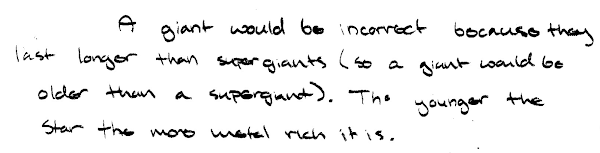 A giant would be incorrect because they
last longer than supergiants (so a giant would be
older than a supergiant). The younger the
star the more metal rich it is.